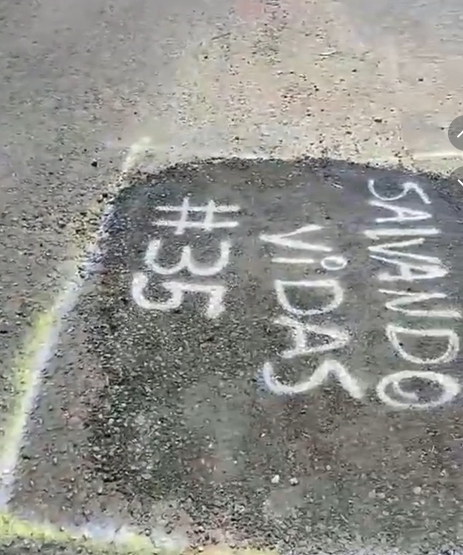 SALVANDO
ViDAS
#35